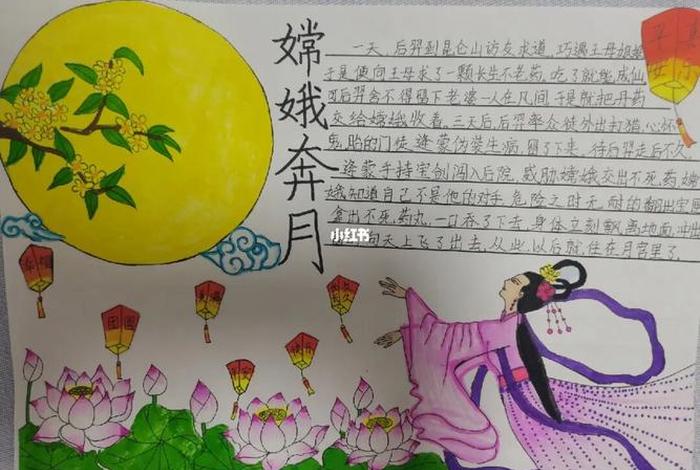 嫦娥奔月
一天,后羿到昆仑山访友求道,巧遇王母娘娘
于是便向王母求了一颗长生不老药,吃了就能成仙
可后羿舍不得留下老婆一人在凡间于是就把丹药
交给嫦娥收着,三天后后羿率众徒外出打猎,心怀
鬼胎的门徒,逢蒙伪装生病,留了下来,待后羿走后不久
逢蒙手持宝剑闯入后院,威胁嫦娥交出不死药嫦
娥知道自己不是他的对手危险之时无耐的翻出宝匣
拿出不死药丸,一口吞了下去,身体立刻飘离地面,冲出
向天上飞了出去,从此,以后就住在月宫里了,
小红书
团圆